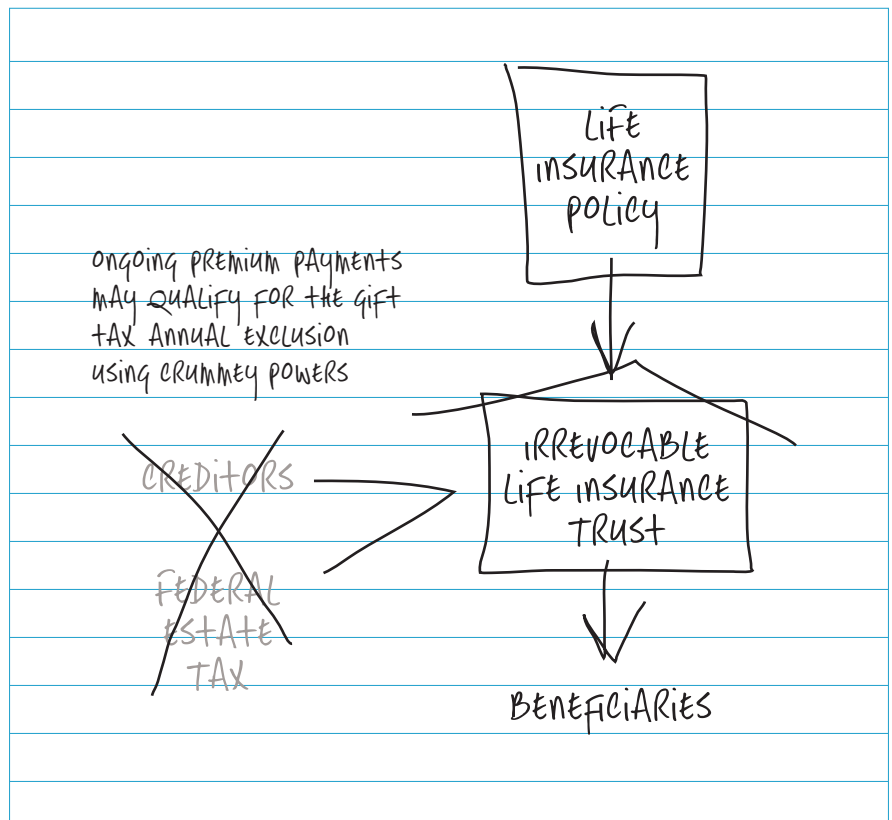 LIFE
INSURANCE
POLICY
ONGOING PREMIUM PAYMENTS
MAY QUALIFY FOR THE GIFT
TAX ANNUAL EXCLUSION
USING CRUMMEY POWERS
CREDITORS
FEDERAL
ESTATE
TAX
IRREVOCABLE
LIFE INSURANCE
TRUST
BENEFICIARIES